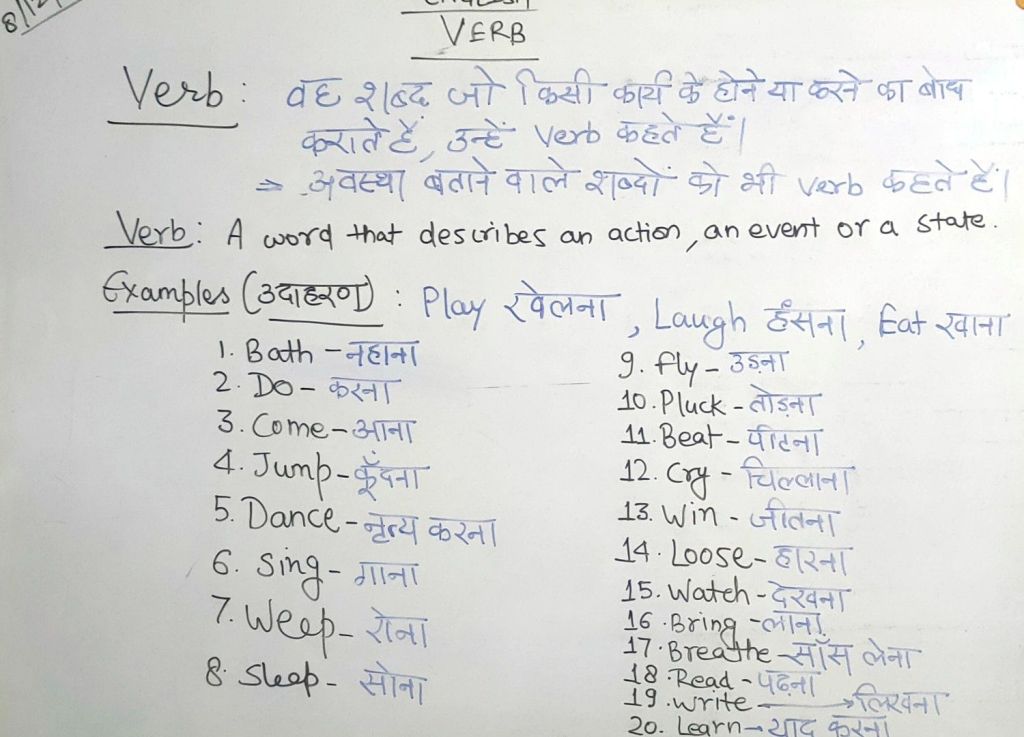 8/12
ENGLISH
VERB
Verb: वह शब्द जो किसी कार्य के होने या करने का बोध
कराते हैं, उन्हें Verb कहते हैं।
⇒ अवस्था बताने वाले शब्दों को भी verb कहते हैं।
Verb: A word that describes an action, an event or a state.
Examples (उदाहरण) : Play खेलना, Laugh हँसना, Eat खाना
1. Bath - नहाना
2. Do - करना
3. Come - आना
4. Jump - कूँदना
5. Dance - नृत्य करना
6. Sing - गाना
7. Weep - रोना
8. Sleep - सोना
9. fly - उड़ना
10. Pluck - तोड़ना
11. Beat - पीटना
12. Cry - चिल्लाना
13. Win - जीतना
14. Loose - हारना
15. Watch - देखना
16. Bring - लाना
17. Breathe - साँस लेना
18. Read - पढ़ना
19. write → लिखना
20. Learn → याद करना